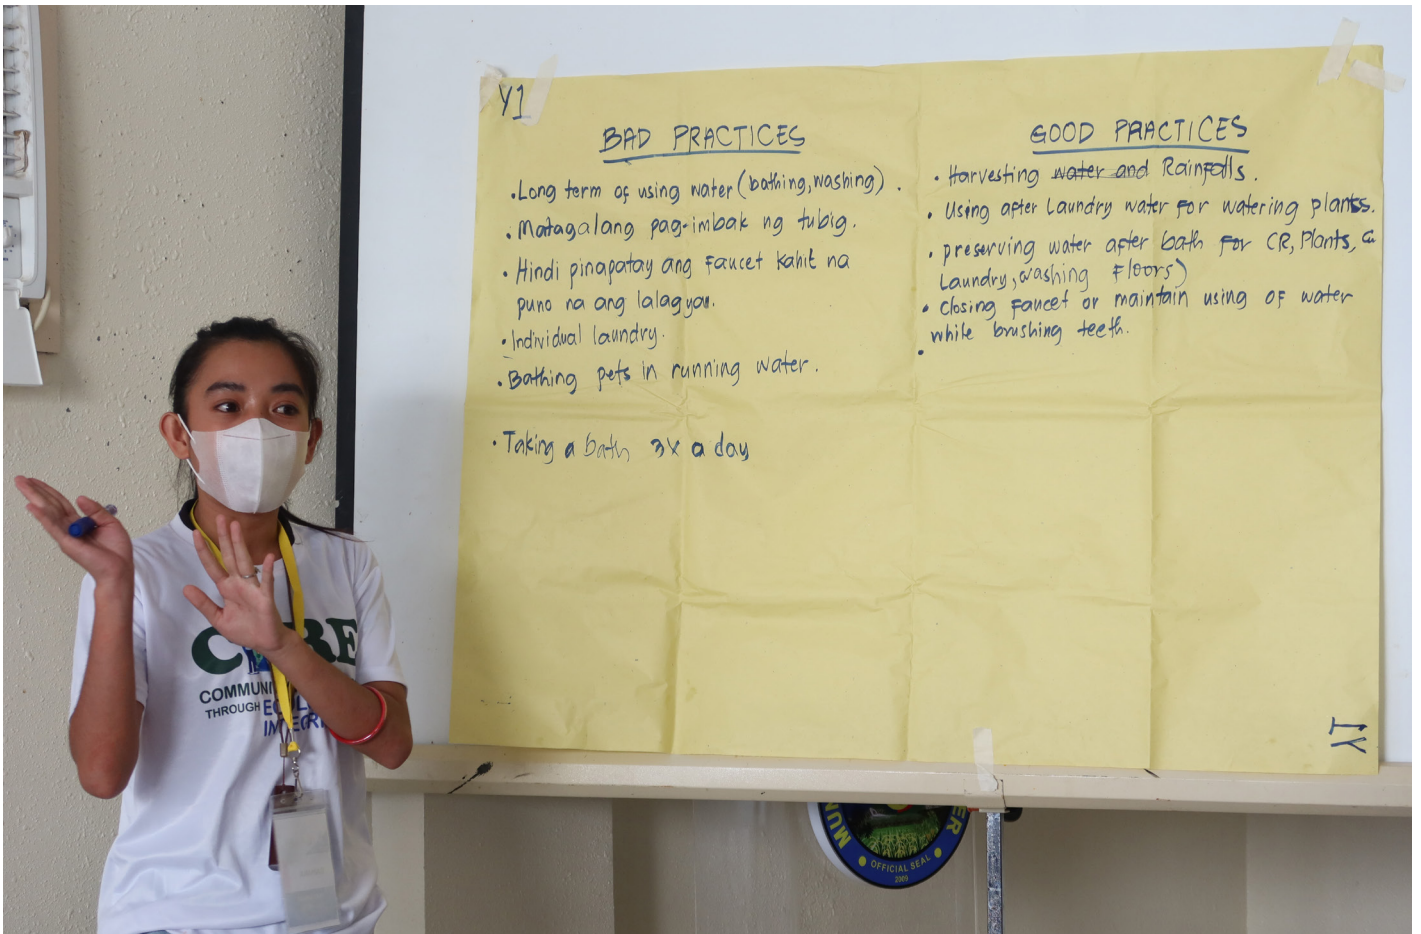 Y1
BAD PRACTICES
• Long term of using water (bathing, washing).
• Matagalang pag-imbak ng tubig.
• Hindi pinapatay ang faucet kahit na
puno na ang lalagyan.
• Individual laundry.
• Bathing pets in running water.
• Taking a bath 3x a day
GOOD PRACTICES
• Harvesting water and Rainfalls.
• Using after Laundry water for watering plants.
• preserving water after bath for CR, Plants,
Laundry, washing Floors)
• Closing faucet or maintain using of water
while brushing teeth.
•
Y1
THROUGH
OFFICIAL SEAL
2009